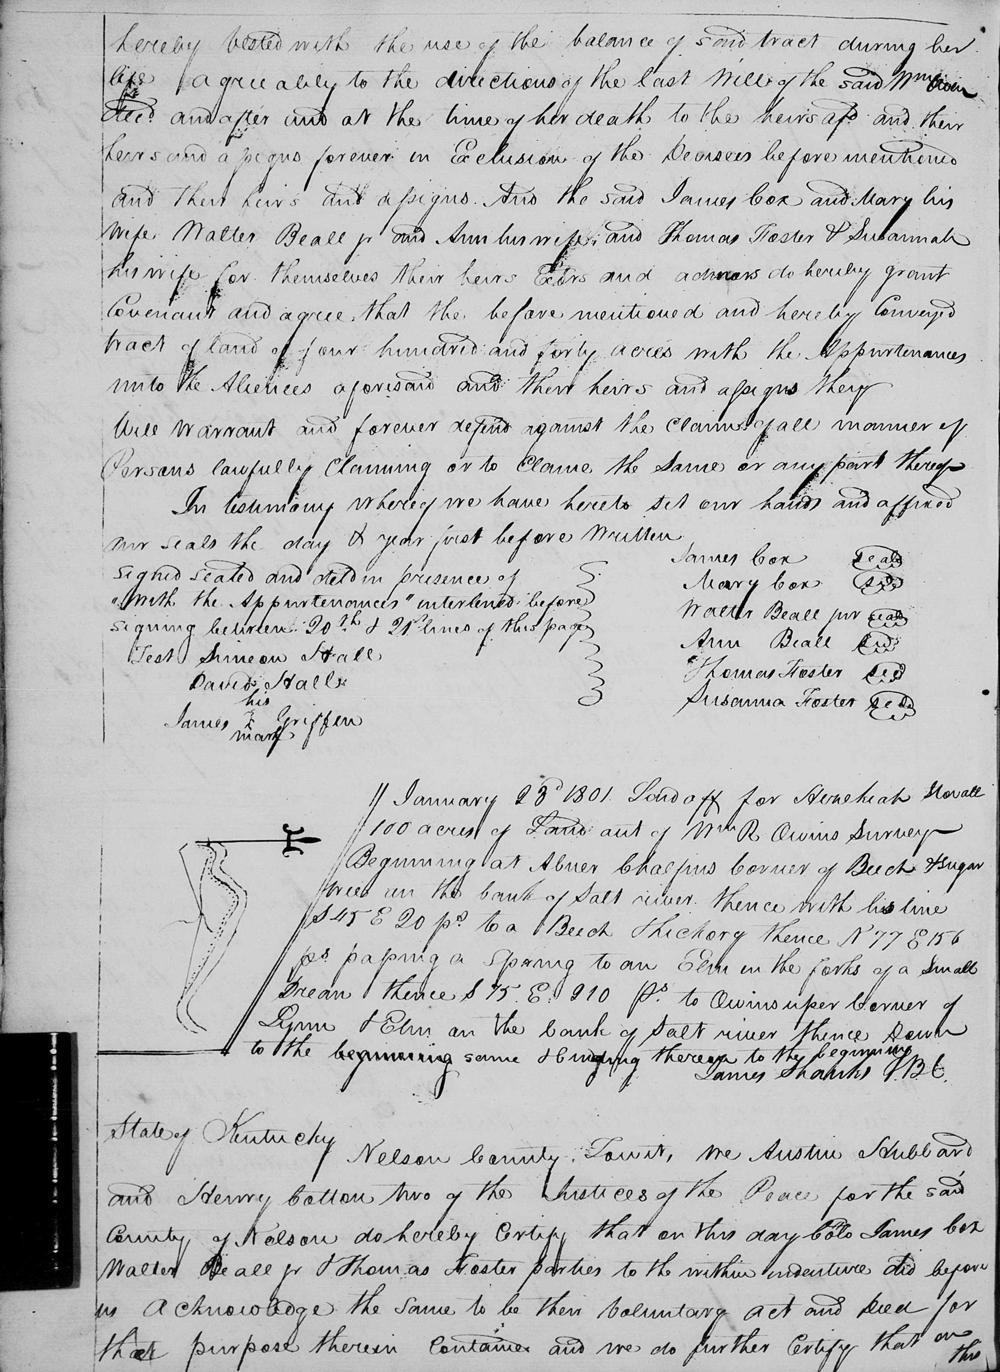 hereby vested with the use of the balance of said tract during her
life agreeably to the directions of the last Will of the said Wm Owen
decd. and after and at the time of her death to the heirs afd and their
heirs and assigns forever in Exclusion of the Devisees before mentioned
and their heirs and assigns. And the said James Cox and Mary his
Wife Walter Beall jr and Ann his wife, and Thomas Foster & Susannah
his wife for themselves their heirs Extrs and admors do hereby grant
Covenant and agree that the before mentioned and hereby Conveyed
tract of land of four hundred and forty acres with the Appurtenances
unto the Alienees aforesaid and their heirs and assigns they
Will Warrant and forever defend against the Claims of all manner of
Persons lawfully Claiming or to Claim the Same or any part thereof
In testimony whereof we have hereto set our hands and affixed
our seals the day & year first before Written
Signed sealed and deld in presence of
"With the Appurtenances" interlined before
signing between 20th & 21st lines of this page
Test Simeon Hall
David Hall
his
James X Griffen
mark
James Cox seal
Mary Cox seal
Walter Beall jnr seal
Ann Beall seal
Thomas Foster seal
Susanna Foster seal
January 23d 1801. Laid off for Hezekiah Stovall
100 acres of Land out of Wm R Owins Survey
Beginning at Abner Chalfins Corner of Beech & Sugar
tree on the bank of Salt river thence with his line
S 45 E 20 ps to a Beech & Hickory thence N 77 E 156
ps passing a Spring to an Elm in the forks of a Small
Drean thence S 75 E. 210 Ps. to Owins uper Corner of
Lynn & Elm on the bank of Salt river thence Down
to the beginning same & binding thereon to the beginning
James Shanks
State of Kentucky
Nelson County, Towit, We Austin Hubbard
and Henry Cotton two of the Justices of the Peace for the said
County of Nelson do hereby Certify that on this day Colo James Cox
Walter Beall jr & Thomas Foster parties to the within indenture did before
us Acknowledge the same to be their Voluntary act and Deed for
that purpose therein Contained and we do further Certify that on
this